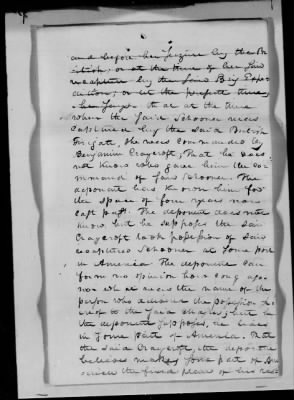 and before her seizure by the Br
itish, or at the time of her said
recapture by the said Brig Expe-
dition, or at the present time,
+ he says that at the time
when the said Schooner was
captured by the said British
Frigate, she was commanded by
Benjamin Craycroft, That he does
not know who gave him the com
mand of said Schooner. The
deponent has known him for
the space of four years now
last past. The deponent does not
know, but he supposes the said
Craycroft took possession of said
recaptured Schooner at some port
in America The deponent can
form no opinion how long ago,
nor what was the name of the
person who delivered the possession th
ereof to the said Master, but he
the deponent supposes, he lives
in some part of America. That
the said Craycroft, the deponent
believes makes some part of Am
erica the fixed place of his resi